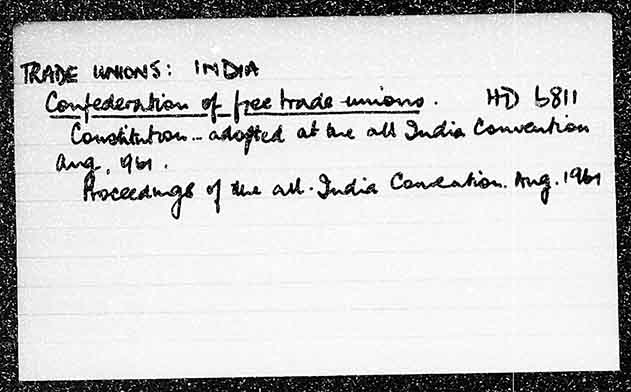 TRADE UNIONS: INDIA
Confederation of free trade unions. HD 6811
Constitution.. adopted at the all India Convention
Aug, 1961.
Proceedings of the all-India Convention. Aug. 1961